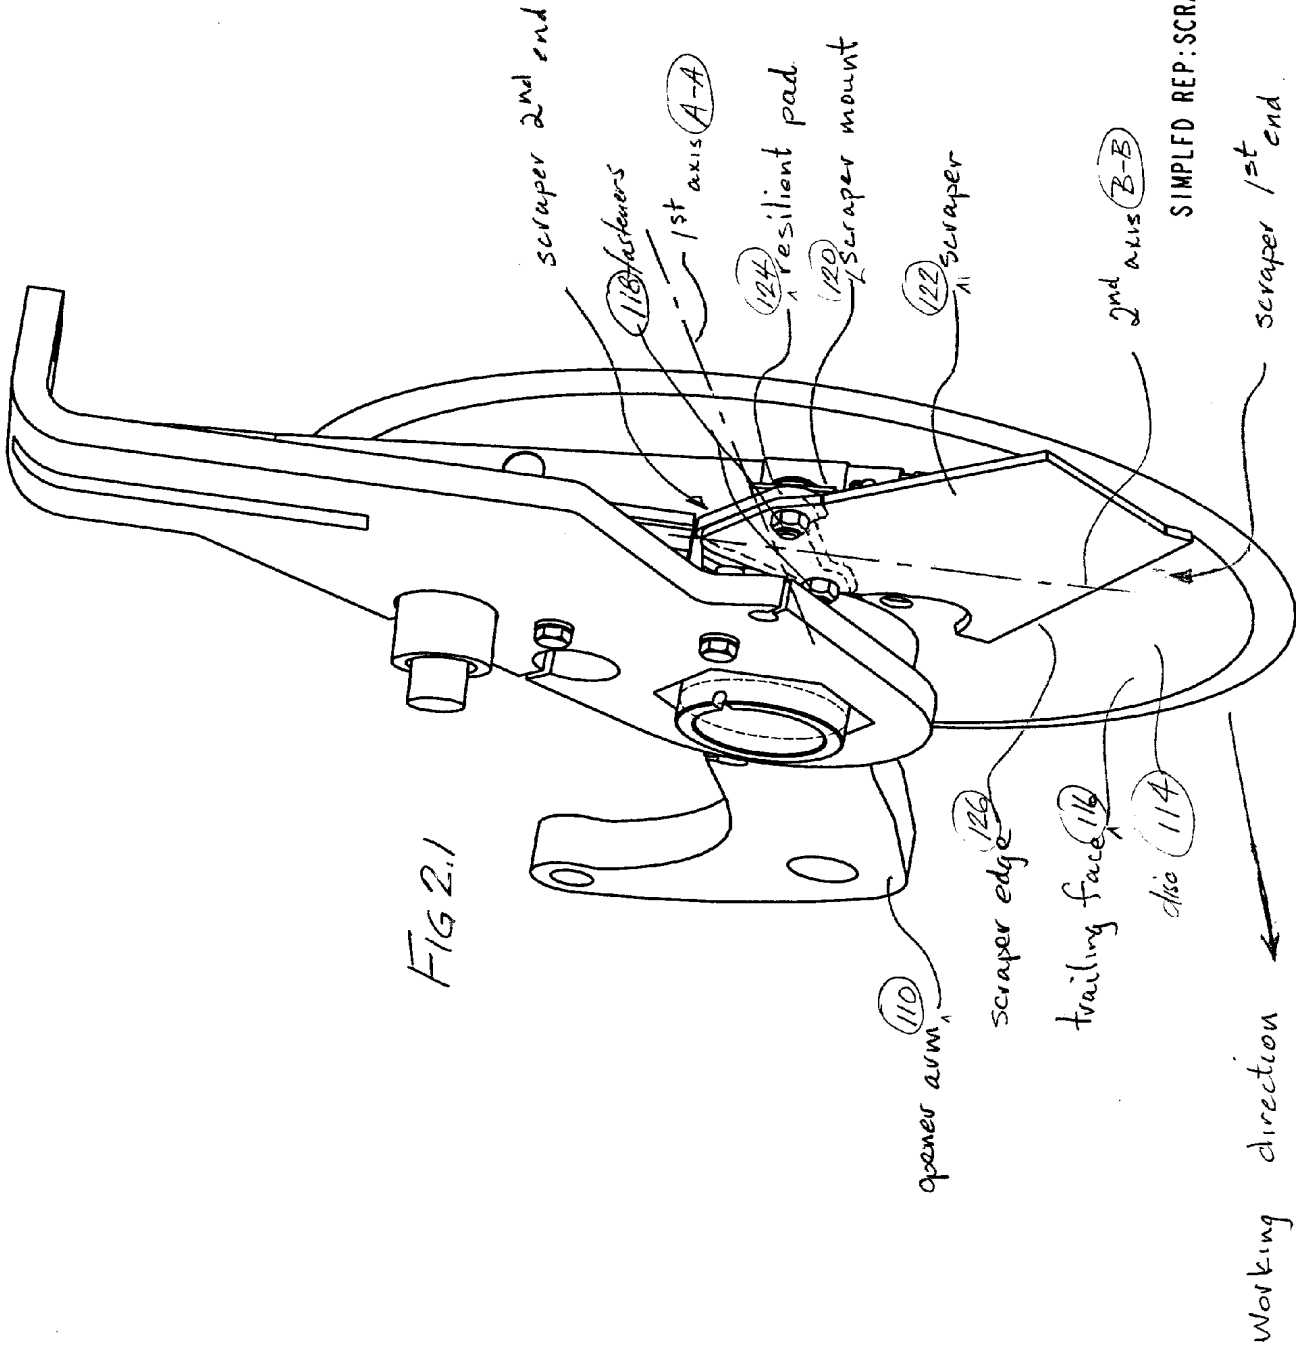 scraper 2nd end
118 fasteners
1st axis A-A
124 resilient pad
120 scraper mount
122 scraper
2nd axis B-B
SIMPLFD REP: SCR
scraper 1st end
FIG 2.1
110
opener arm
126
scraper edge
trailing face 116
disc 114
Working direction